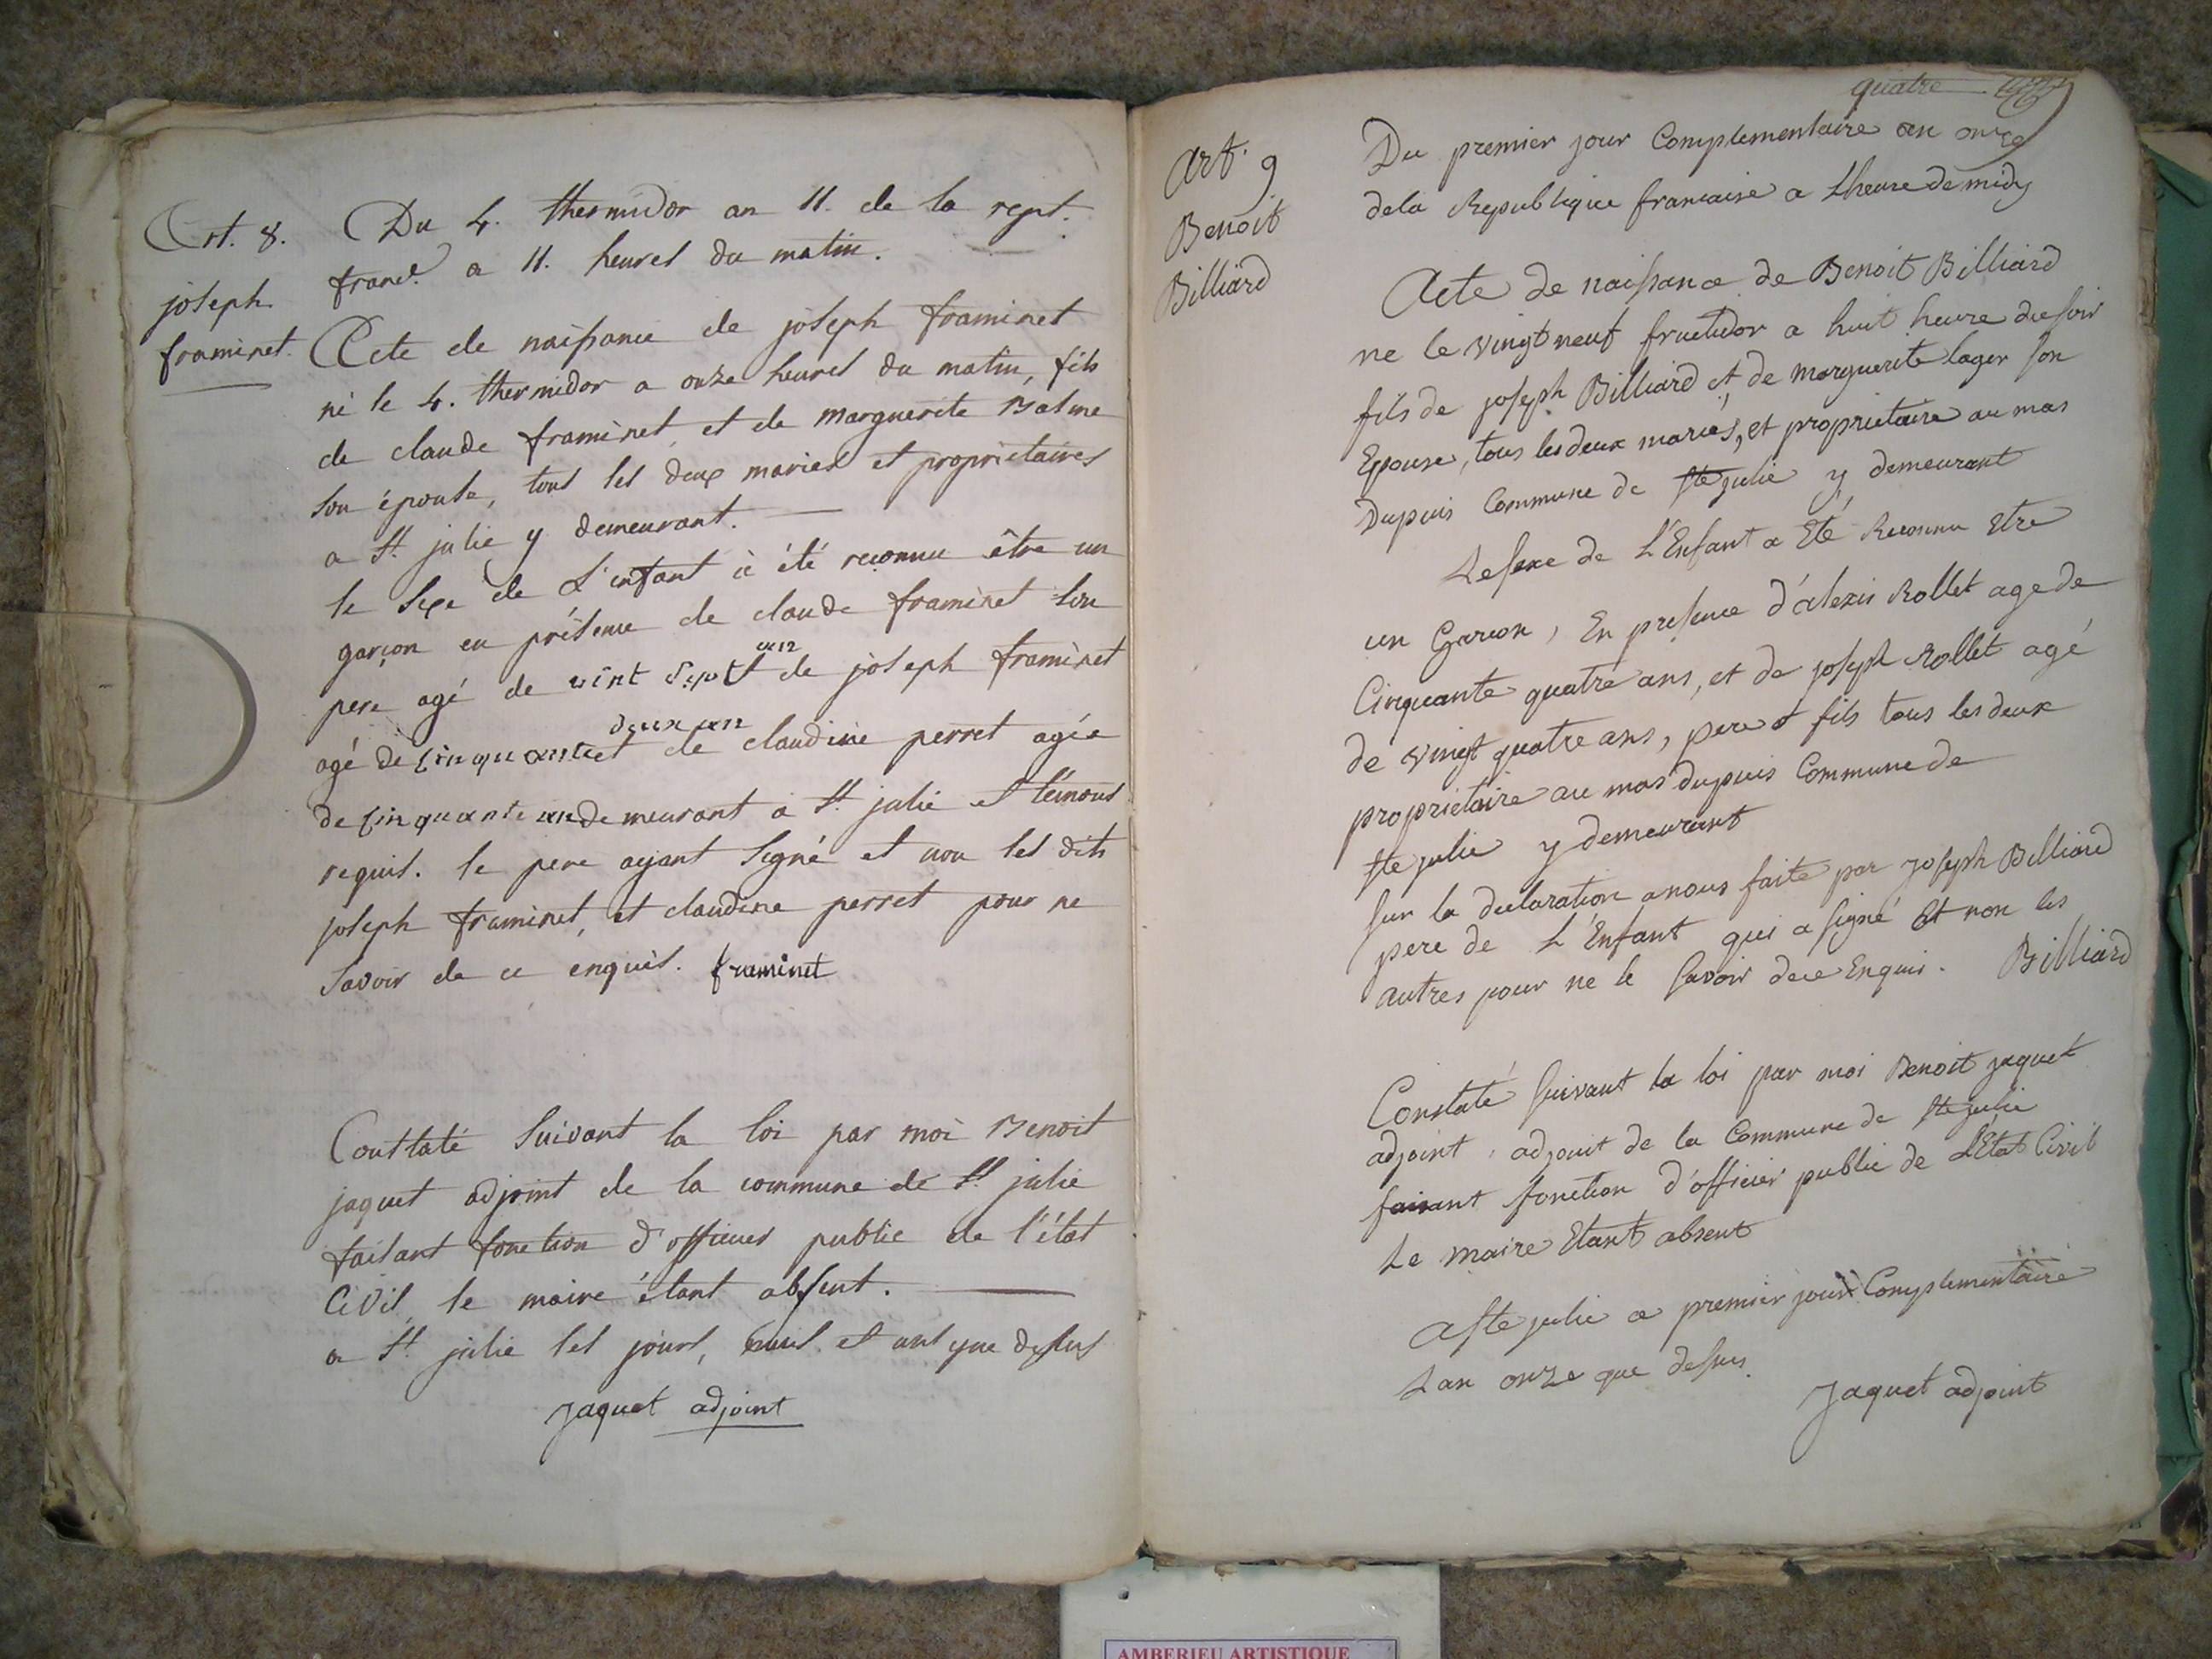 Art. 8.
joseph
framinet.
Du 4. thermidor an 11. de la rept.
franc.e a 11. heures du matin.
Acte de naissance de joseph framinet
né le 4. thermidor a onze heures du matin, fils
de claude framinet, et de marguerite Balme
son épouse, tous les deux mariés et proprietaires
a St. julie y demeurant.
le sexe de L'enfant à été reconnu être un
garçon en présence de claude framinet son
an
pere agé de vint sept de joseph framinet
deux an
agé de cinquante et de claudine perret agée
de cinquante an demeurant a St. julie et témoins
requis. le pere ayant signé et non les dits
joseph framinet, et claudine perret pour ne
savoir de ce enquis. framinet
Constaté suivant la loi par moi Benoit
jaquet adjoint de la commune de St. julie
faisant fonction d'officier public de l'état
Civil, le maire étant absent.
a St. julie les jours, mois et ans que dessus
Jaquet adjoint
quatre
Art. 9
Benoit
Billiard
Du premier jour Complementaire an onze
dela Republique francaise a Lheure de midy
Acte de naissance de Benoit Billiard
ne le vingt neuf fructidor a huit heure du soir
fils de joseph Billiard et de marguerite lager son
Epouse, tous les deux mariés, et proprietaire au mas
Dupuis Commune de ste julie y demeurant
Le sexe de L'Enfant a Eté Reconnu Etre
un Garcon, En presence d'alexis Rollet age de
Cinquante quatre ans, et de joseph Rollet agé
de vingt quatre ans, pere et fils tous les deux
proprietaire au mas Dupuis Commune de
ste julie y demeurant
sur la declaration a nous faite par joseph Billiard
pere de L'Enfant qui a signé Et non les
autres pour ne le savoir dece Enquis. Billiard
Constaté suivant la loi par moi Benoit jaquet
adjoint, adjoint de la Commune de ste julie
faisant fonction d'officier public de L'Etat Civil
Le maire Etant absent
a ste julie a premier jour Complementaire
Lan onze que dessus
Jaquet adjoint
AMBERIEU ARTISTIQUE